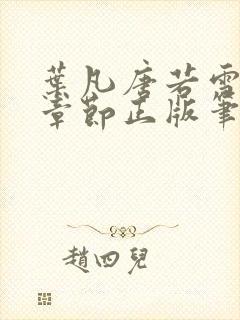 葉凡唐若雪
章節正版筆
趙四兒